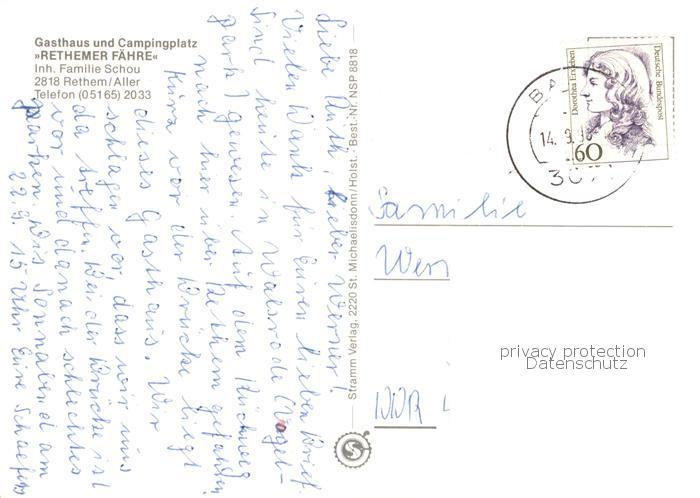 Gasthaus und Campingplatz
»RETHEMER FÄHRE«
Inh. Familie Schou
2818 Rethem/Aller
Telefon (05165) 2033
Liebe Ruth, lieber Werner!
Vielen Dank für Euren lieben Brief.
Sind heute in Walsrode (Vogel-
park) gewesen. Auf dem Rückweg
nach hier über Rethem gefahren
Kurz vor der Brücke liegt
dieses Gasthaus. Wir
schlagen vor dass wir uns
da treffen. Bei der Brücke ist
vor und danach schlechtes
parken. Bis Sonnabend am
22.9. 15 Uhr Eure Schaefers
Stramm Verlag, 2220 St. Michaelisdonn/Holst. · Best.-Nr. NSP 8818
Deutsche Bundespost
Dorothea Erxleben
60
14. 9.
Familie
Wer
DDR
privacy protection
Datenschutz